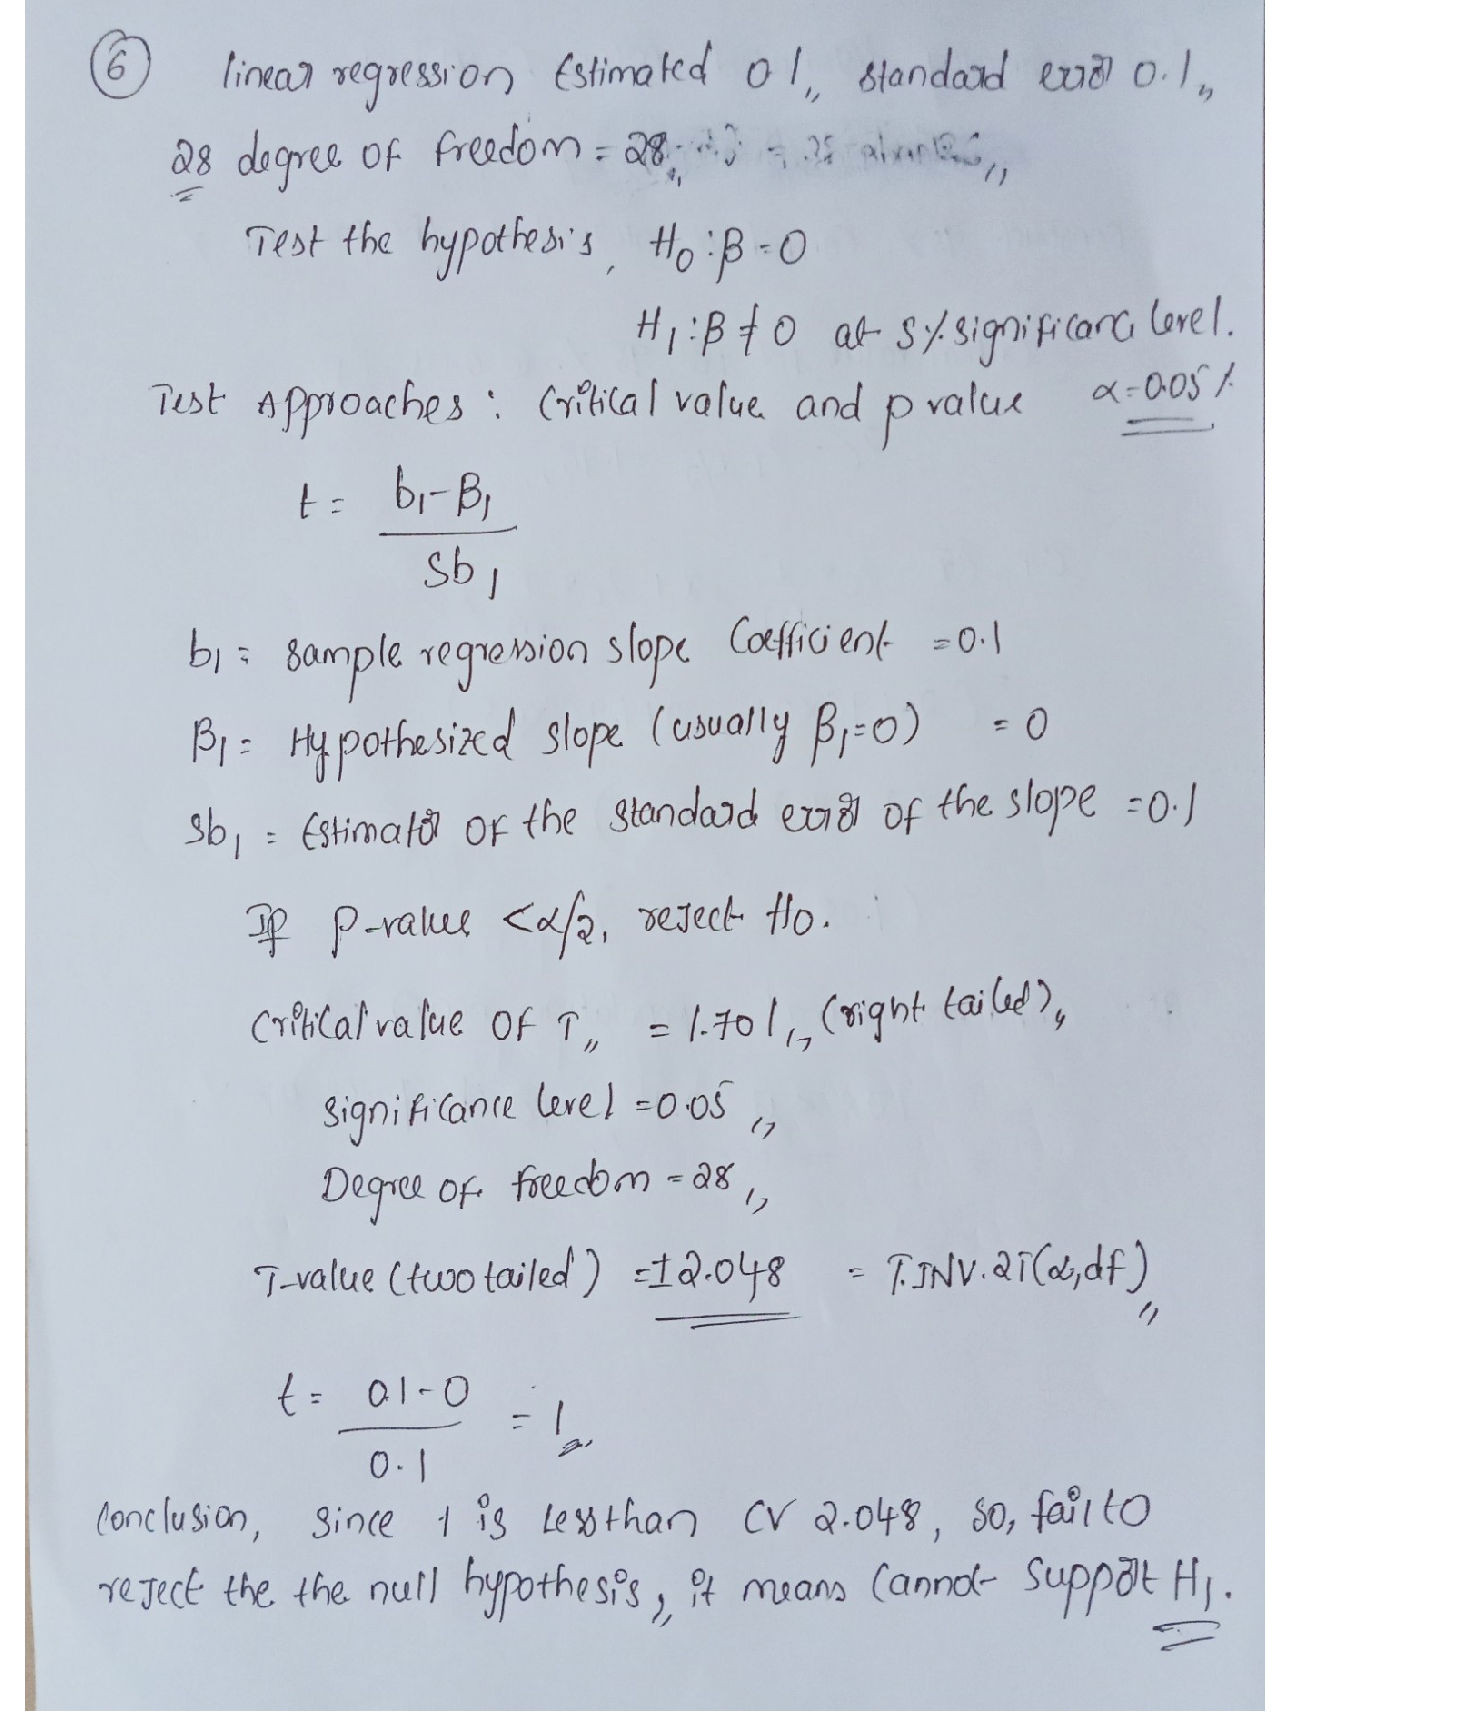 6 linear regression Estimated 0.1,, standard error 0.1,,
28 degree of freedom = 28,,
Test the hypothesis, H0 : β = 0
H1 : β ≠ 0 at 5% significanc level.
Test Approaches : Critical value and p value α = 0.05 %
t = b1 - β1
Sb1
b1 = sample regression slope Coefficient = 0.1
β1 = Hypothesized slope (usually β1 = 0) = 0
Sb1 = Estimator of the standard error of the slope = 0.1
If p-value < α/2, reject H0.
Critical value of T,, = 1.701,, (right tailed),,
significance level = 0.05,,
Degree of freedom = 28,,
T-value (two tailed) = ±2.048 = T.INV.2T(α,df),,
t = 0.1 - 0 = 1
0.1
Conclusion, since 1 is less than CV 2.048, so, fail to
reject the the null hypothesis,, it means cannot support H1.